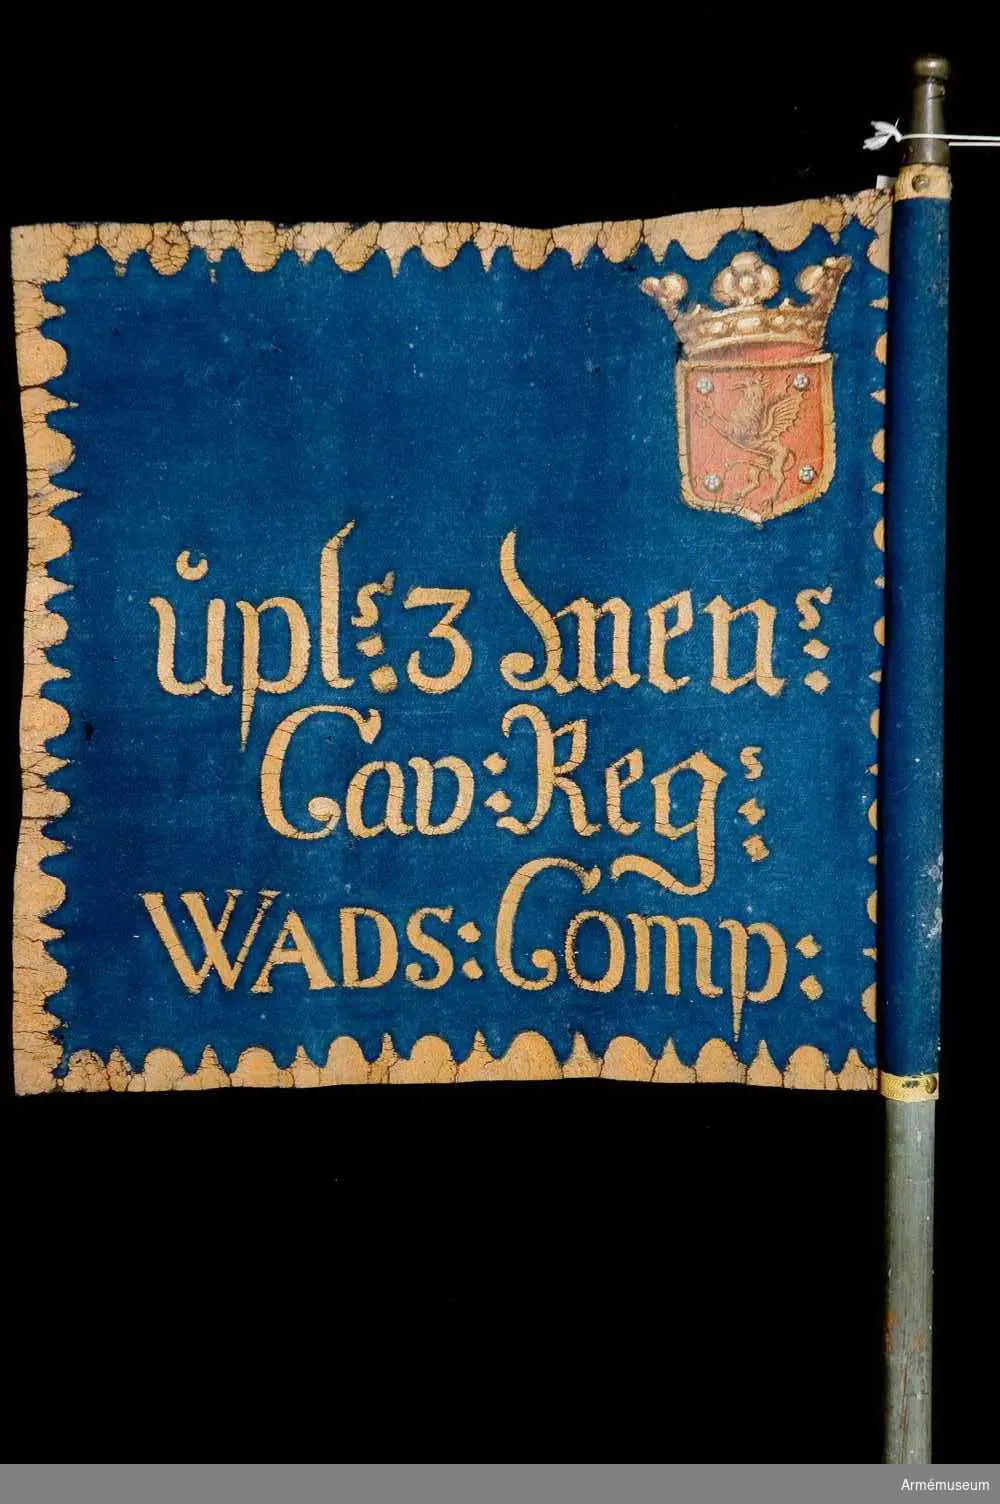 ůpl:s 3 Men:s
Cav: Reg:s
WADS: Comp:
Armémuseum